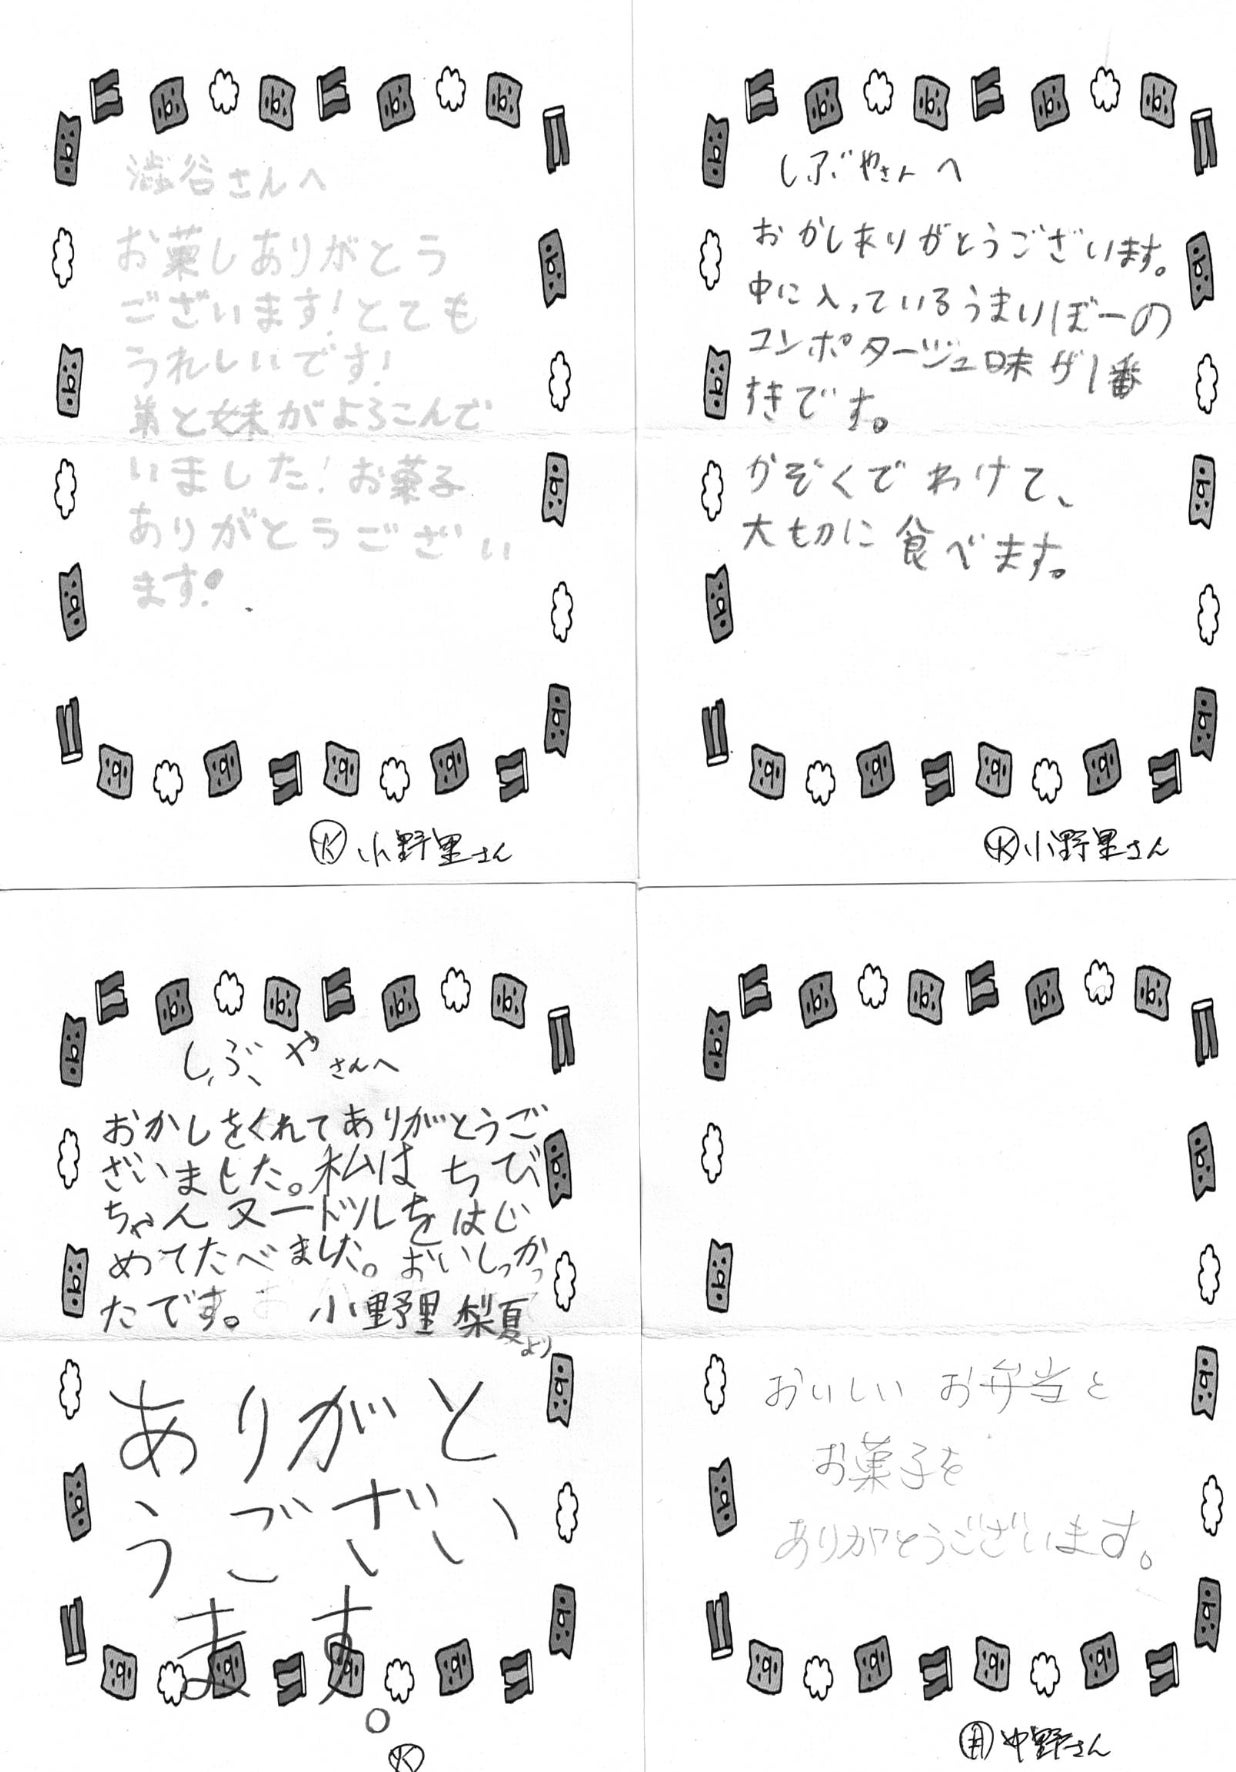 澁谷さんへ
お菓しありがとう
ございます!とても
うれしいです!
弟と妹がよろこんで
いました!お菓子
ありがとうござい
ます!
Ⓚ小野里さん
しぶやさんへ
おかしありがとうございます。
中に入っているうまいぼーの
コンポタージュ味が1番
すきです。
かぞくでわけて、
大切に食べます。
Ⓚ小野里さん
しぶやさんへ
おかしをくれてありがとうご
ざいました。私はちび
ちゃんヌードルをはじ
めてたべました。おいしっかっ
たです。 小野里 梨夏より
ありがと
うござい
ます。
Ⓚ
おいしい お弁当と
お菓子を
ありがとうございます。
中野さん